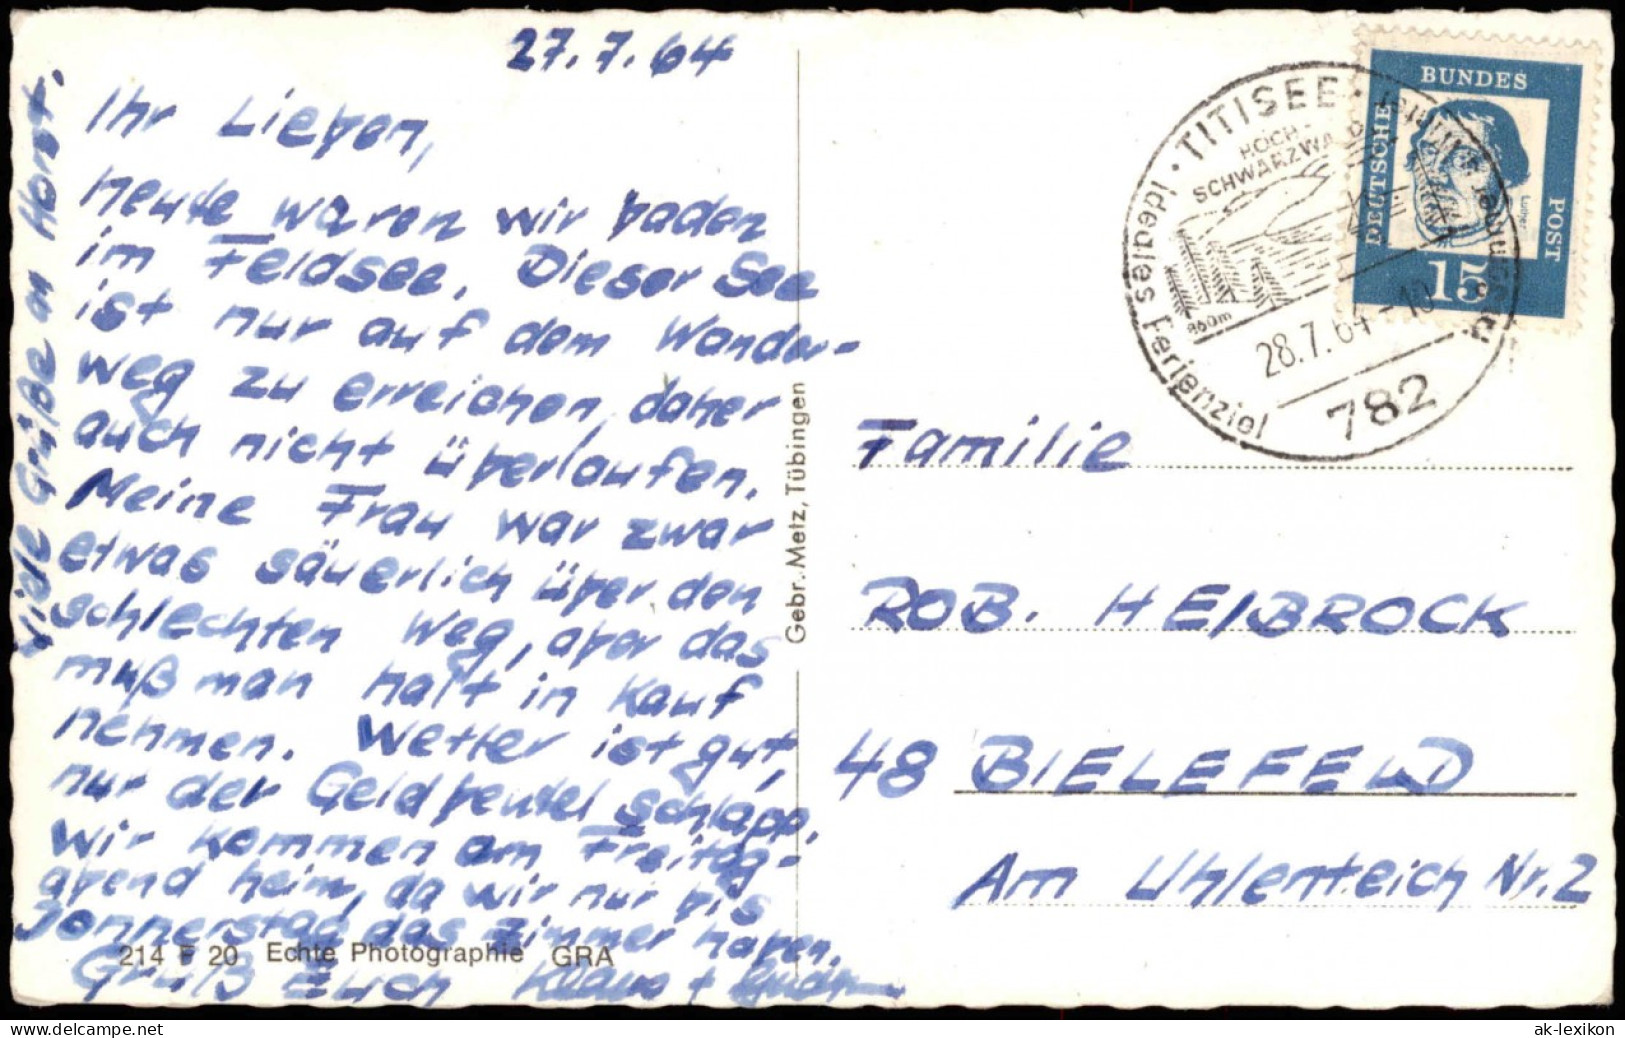 27.7.64
Ihr Lieben,
heute waren wir baden
im Feldsee. Dieser See
ist nur auf dem Wander-
weg zu erreichen, daher
auch nicht überlaufen.
Meine Frau war zwar
etwas säuerlich über den
schlechten Weg, aber das
muß man halt in Kauf
nehmen. Wetter ist gut,
nur der Geldbeutel schlapp.
Wir kommen am Freitag-
abend heim, da wir nur bis
Donnerstag das Zimmer haben.
Gruß Euch Klaus +
Viele Grüße an Horst.
214 F 20 Echte Photographie GRA
Gebr. Metz, Tübingen
TITISEE
HOCH-
SCHWARZWA
860m
28.7.64-10
782
Ideales Ferienziel
DEUTSCHE
BUNDES
POST
Luther
15
Familie
ROB. HEIBROCK
48 BIELEFELD
Am Uhlenteich Nr. 2
delcampe.net
ak-lexikon